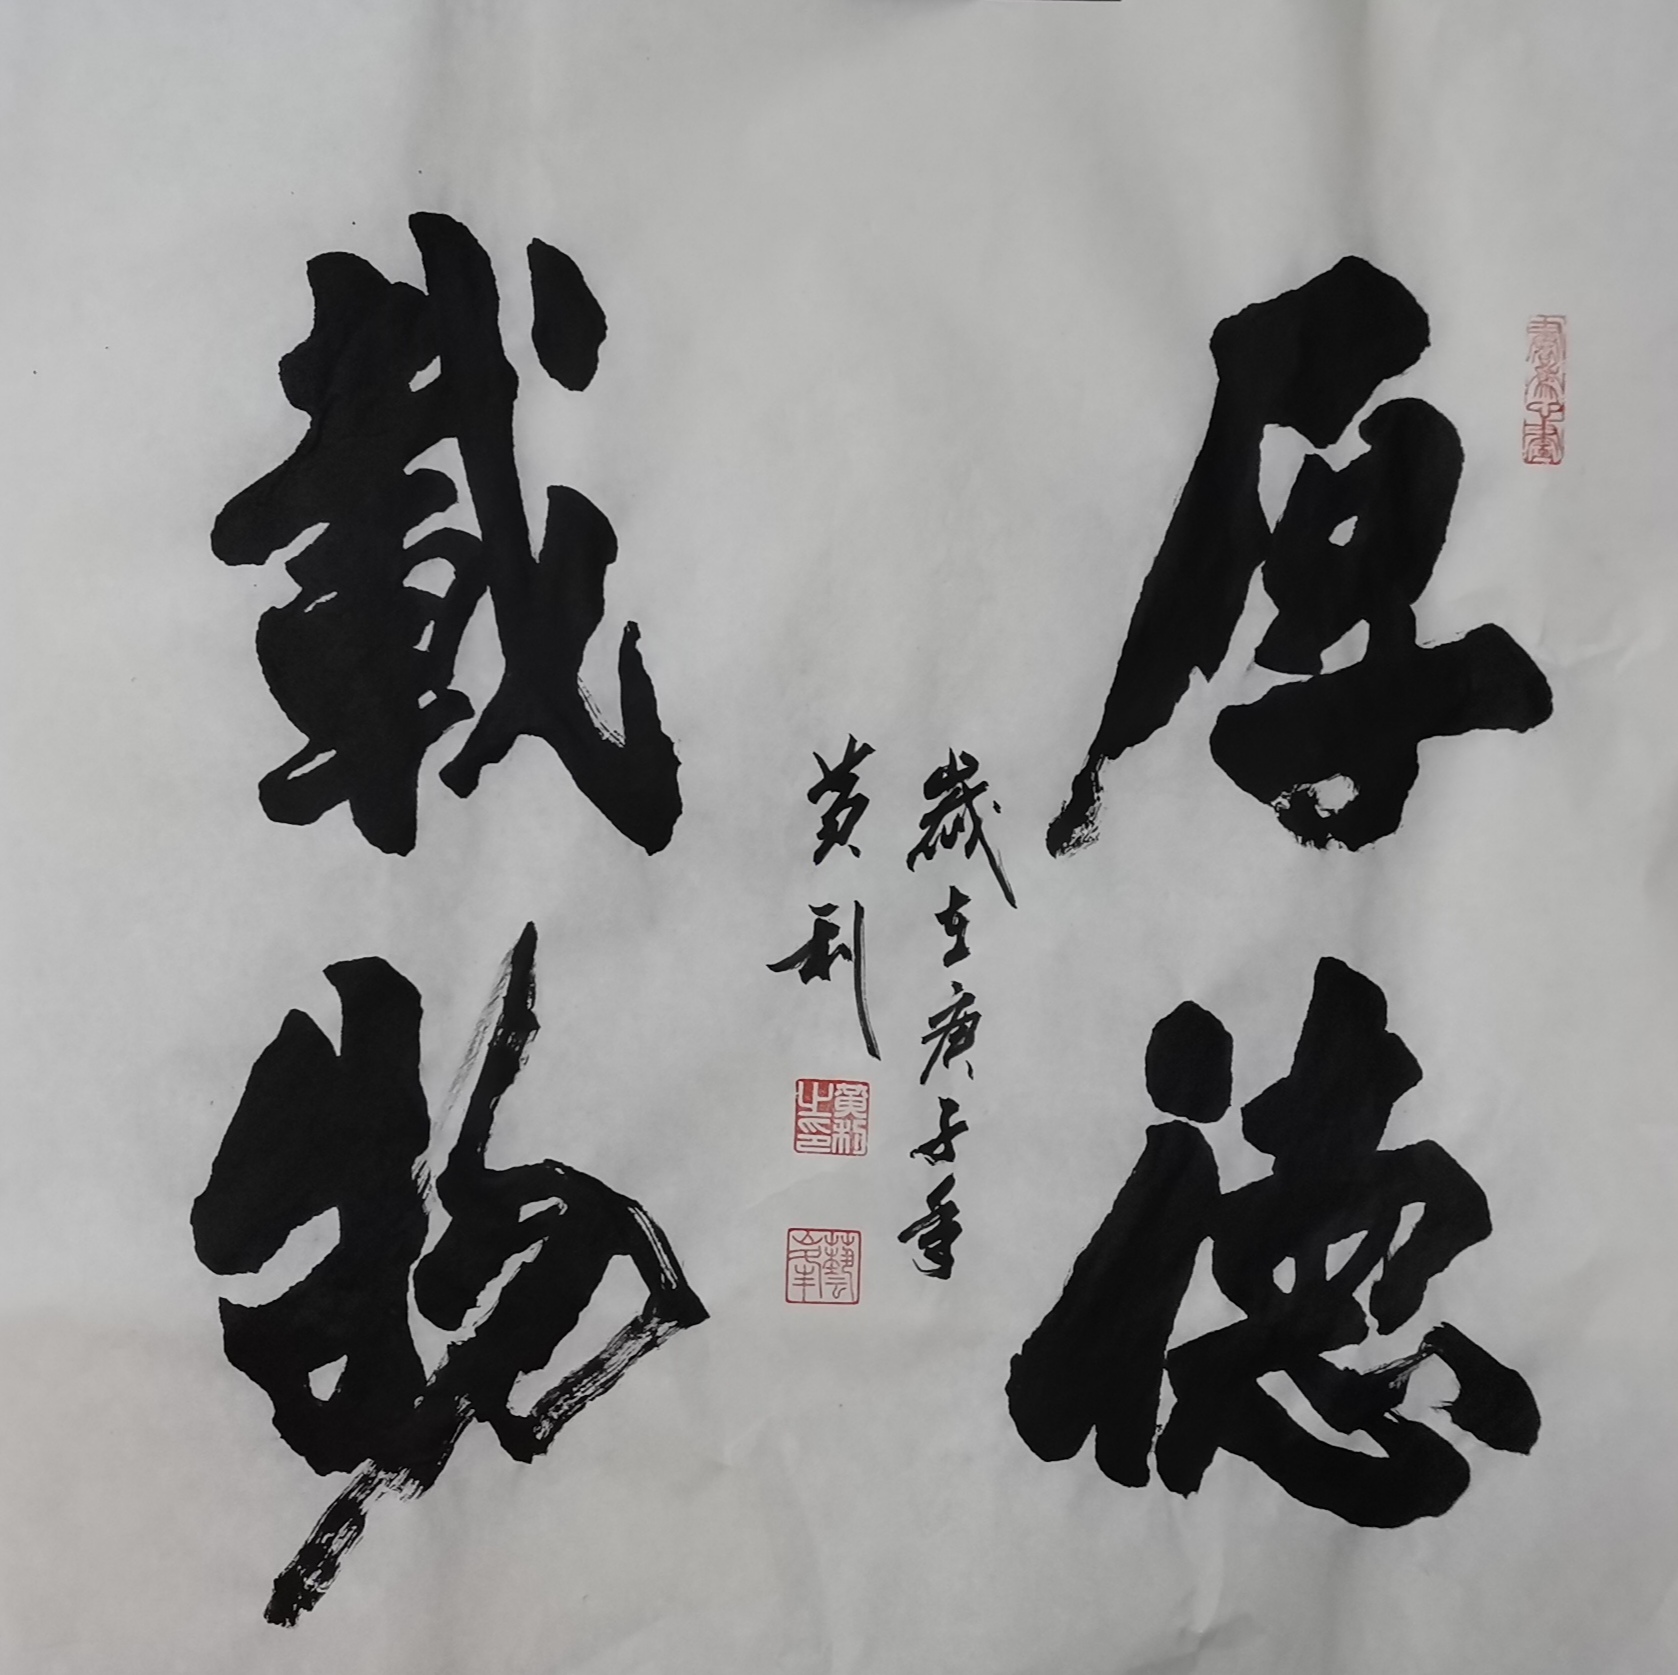 厚德
載物
歲在庚子年
黄利
黄利之印